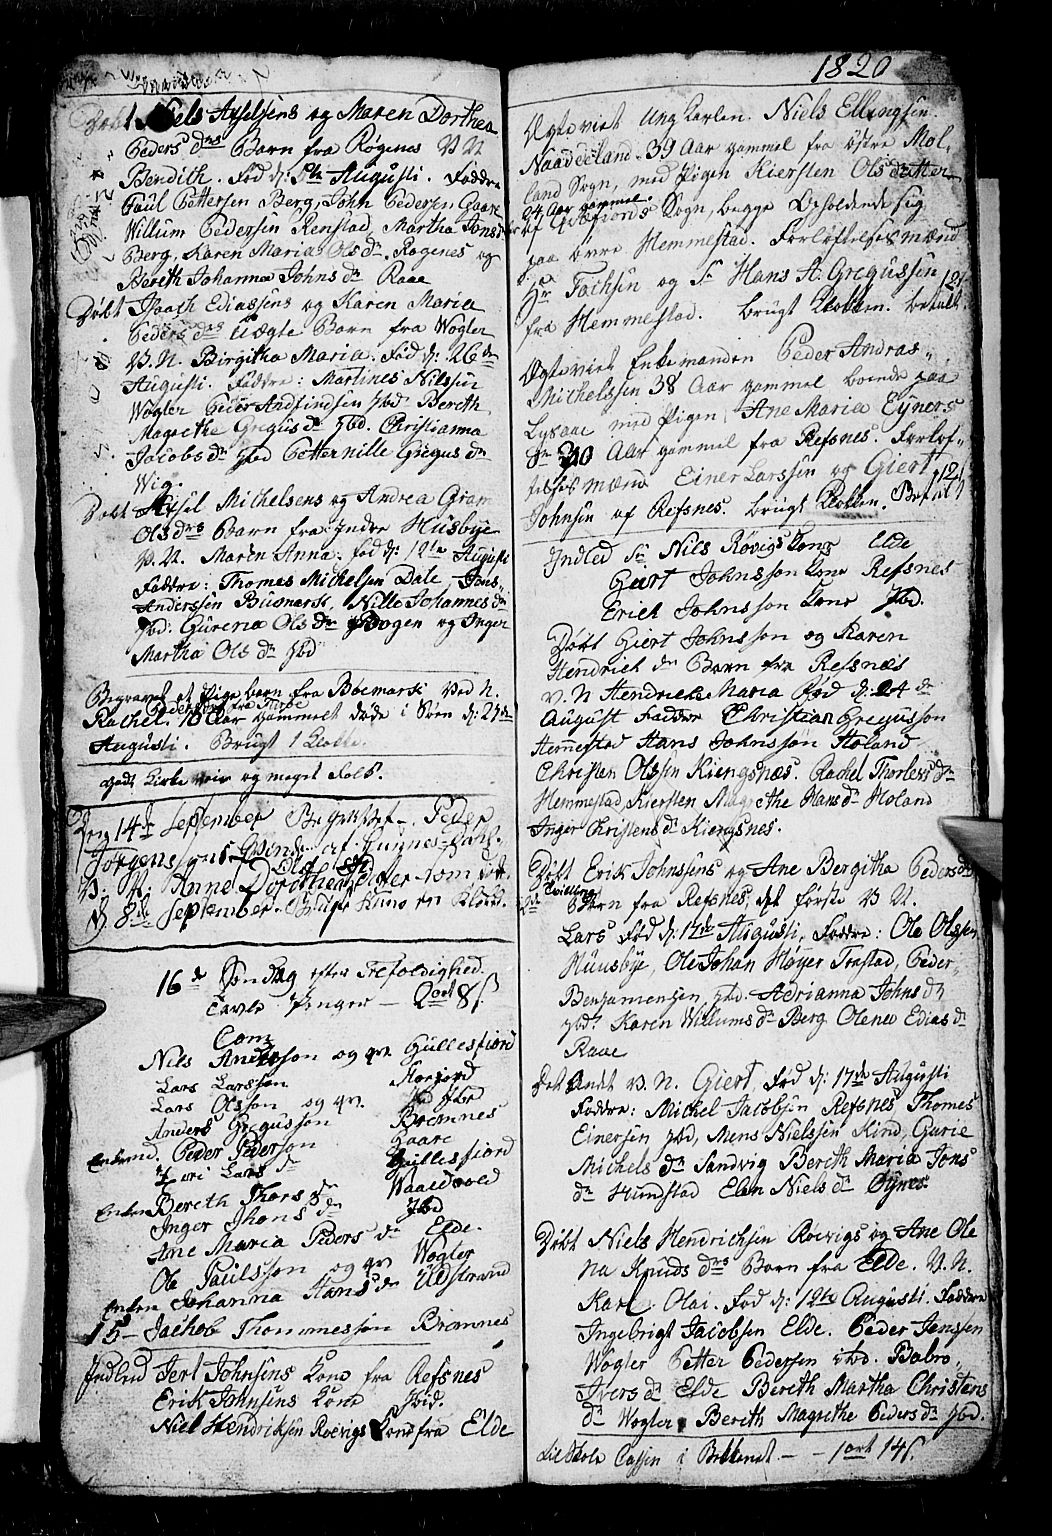 1820
Døbt Niels Axelsens og Maren Dorthea
Peders drs Barn fra Røgenes V. N.
Bendith. Fød d: 5te Augusti. Faddre
Paul Pettersen Berg, John Pedersen Gaare
Willum Pedersen Renstad, Martha Jons dr
Berg, Karen Maria Ols dr. Røgenes og
Berith Johanna Johns dr Raae
Døbt Isaach Ediassens og Karen Maria
Peders drs Uægte Barn fra Wogler
V. N. Birgitha Maria. Fød d: 26de
Augusti. Faddre: Martines Nilssen
Wogler Peder Andfindsen Ibd. Berith
Magrethe Gregus dr Ibd. Christianna
Jacobs dr Ibd Petternille Gregus dr
Wig.
Døbt Axsel Michelsens og Andrea Gram
Ols drs Barn fra Indre Husbye
V. N. Maren Anna. fød d: 12te Augusti
Faddre: Thomas Michelsen Dale, Jens
Anderssen Buemark, Nille Johannes dr
Ibd: Gurena Ols dr Bogen og Inger
Martha Ols dr Ibd
Begravet et Pige barn fra Bøemark Ved N.
Rachel. 10 Aar gammel døde i Søen d: 27de
Augusti. Brugt 1 Klokke.
godt Kirke veir og meget Folk.
Den 14de September Begravet Peder
Jørgens
V. N. Anne Dorothea som døde
d. 8de September. Brugt Kuns en Klokke.
16de Søndag efter Trefoldighed.
Tavle Penger — 2 ort 8 s
Com:
Nils Anderson og qv. Gullesfiord
Lars Larsson
Lars Olsson og qv. Ibd
Anders Gregusson Bremnes
Enkemd. Peder Pederson Gaare
Lars dr Gullesfiord
Enken Bereth Thors dr Waaldvold
Inger Jhons dr Ibd
Ane Maria Peders dr Elde.
Ole Paulsson og qv Wogler
Enken Johanna Hans dr Ulstrand
15 — Jachob Thommesson Bremnes
Indled Jert Johnsens Kone fra Refsnes
Erik Johnsens Kone Ibid.
Niel Hendriksen Roevigs Kone fra Elde
Ægteviet Ung karlen. Niels Ellingsen
Naaddeland. 39 Aar gammel fra østre Mol-
land Sogn, med Pigen Kiersten Ols datter
24 Aar gammel.
af Qvæfiords Sogn, begge Opholdende sig
paa øvre Hemmestad. Forlovelsesmænd
Hr Fochsen og Sr Hans A. Gregussen
fra Hemmestad. brugt Klokken. betalt 12 s
Ægteviet Enkemanden Peder Andras-
Michelssen 38 Aar gammel boende paa
Lysaae med Pigen, Ane Maria Eyners
dr 30 Aar gammel fra Refsnes. Forlof-
telses mænd Einer Larssen og Giert
Johnsen af Refsnes. brugt Klokken. Betalt 12 s
Indled Sr Nils Røvigs Kone Elde
Giert Johnsson Kone Refsnes
Erich Johnsson Kone Ibd.
Døbt Giert Johnsson og Karen
Hendrich dr Barn fra Refsnæs
V. N. Hendricha Maria Fød d: 24 de
August Faddre Christian Gregusson
Hemestad Hans Johnsson Holand
Christen Olssen Kiengsnæs. Rachel Thorlefs dr
Hemmestad Kiersten Magrethe Hans dr Holand
Inger Christens dr Kiengsnes.
Døbt Erik Johnssens og Ane Bergitha Peders drs
2de Tvilling
Børn fra Refsnes, det første V. N.
Lars Fød d: 17de Augusti, Faddre: Ole Olssen
Huusbye, Ole Johan Høyer Trastad, Peder-
Benjamensen, Ibd. Adrianna Johns dr
Ibd: Karen Willums dr Berg Olena Edias dr
Raae
Det Andet V. N. Giert, Fød d: 17de Augusti
Faddre: Michel Jacobsen Refsnes Thomes
Einersen Ibd, Mens Nielssen Kind, Gurie
Michels dr Sandvig Berith Maria Jons
dr Hundstad Elen Niels dr Øynes
Døbt Niels Hendrichsen Roevigs og Ane Ole
na Knuds drs Barn fra Elde. V. N.
Karl Olai. Fød d: 12te Augusti. Faddre
Ingebrigt Jacobsen Elde. Peder Jenssen
Wogler Petter Pedersen Ibd. Babro-
Ivers dr Elde Bereth Martha Christens
dr Wogler. Bereth Magrethe Peders dr Ibd.
til Skole Cassen i Bekkendt — 1 ort 14 s.